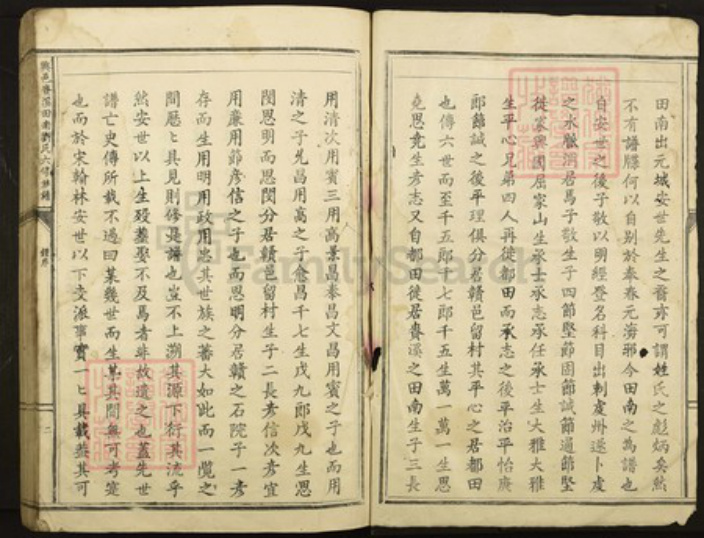 田南出元城安世先生之裔亦可謂姓氏之彪炳矣然
不有譜牒何以自別於奉春元海邪今田南之為譜也
自安世之後子敬以明經登名科目出刺虔州遂卜虔
之水 居焉子敬生子四節堅節固節誠節過節堅
徙寨興國屈家山生承士承志承任承士生大雅大雅
生平心兄弟四人再徙都田而承志之後平治平怡廣
郎節誠之後平理俱分居贛邑留村其平心之居都田
也傳六世而至千五郎千七郎千五生萬一萬一生思
堯思堯生彥志又自都田徙居賚溪之田南生子三長
用清次用賓三用高景昌泰昌文昌用賓之子也而用
清之子兑昌用高之子愈昌千七生戊九郎戊九生思
閔思明而思閔分居贛邑留村生子二長彥信次彥宜
用廉用節彥信之子也而思明分居贛之石院子一彥
存而生用明用政用忠其世族之蕃大如此而一覽之
間歷歷具見則修是譜也豈不上溯其源下衍其流乎
然安世以上生歿塟娶不及焉者非故遺之也蓋先世
譜亡史傳所載不過曰某幾世而生某其間無可考寔
也而於宋翰林安世以下支派事實一一具載蓋其可
田南劉氏六修族譜
譜序
二
FamilySearch